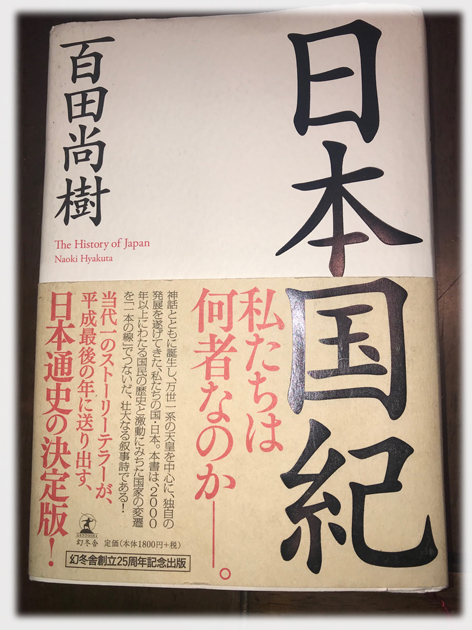 日本国紀
百田尚樹
The History of Japan
Naoki Hyakuta
私たちは
何者なのか——。
神話とともに誕生し、万世一系の天皇を中心に、独自の
発展を遂げてきた、私たちの国・日本。本書は、2000
年以上にわたる国民の歴史と激動にみちた国家の変遷
を「一本の線」でつないだ、壮大なる叙事詩である!
当代一のストーリーテラーが、
平成最後の年に送り出す、
日本通史の決定版!
幻冬舎 定価(本体1800円+税)
幻冬舎創立25周年記念出版